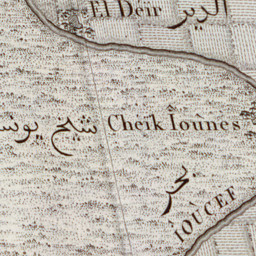 El Deir الدير
شيخ يونس Cheïk Ioùnes
بحر
IOÙCEF